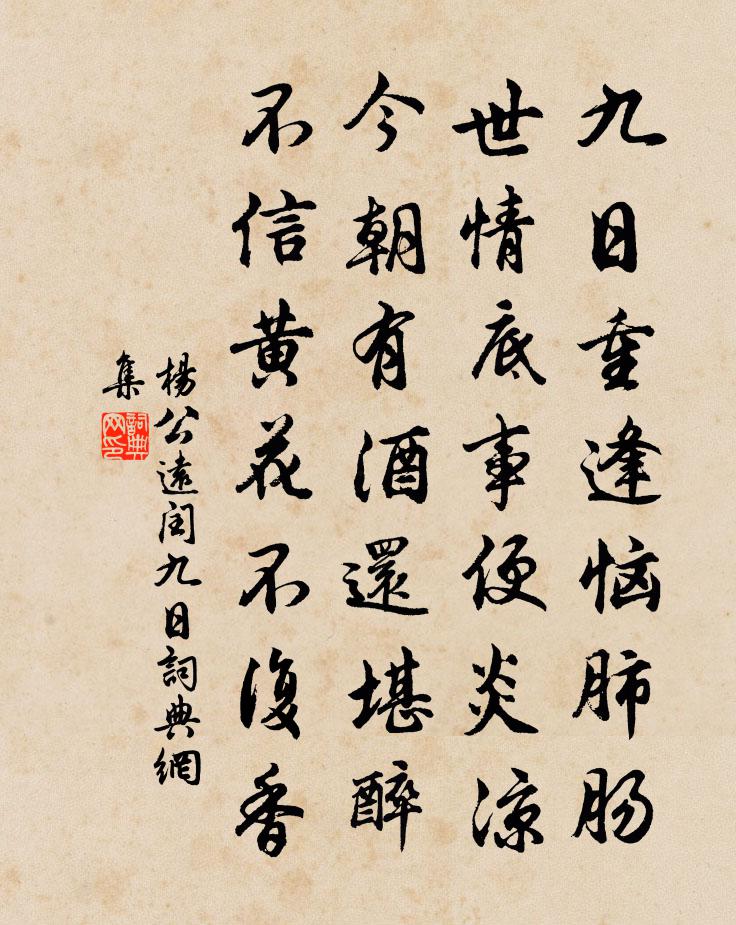 九日重逢恼肺肠
世情底事便炎凉
今朝有酒還堪醉
不信黄花不復香
楊公遠闰九日詞典網
集
詞典
网印